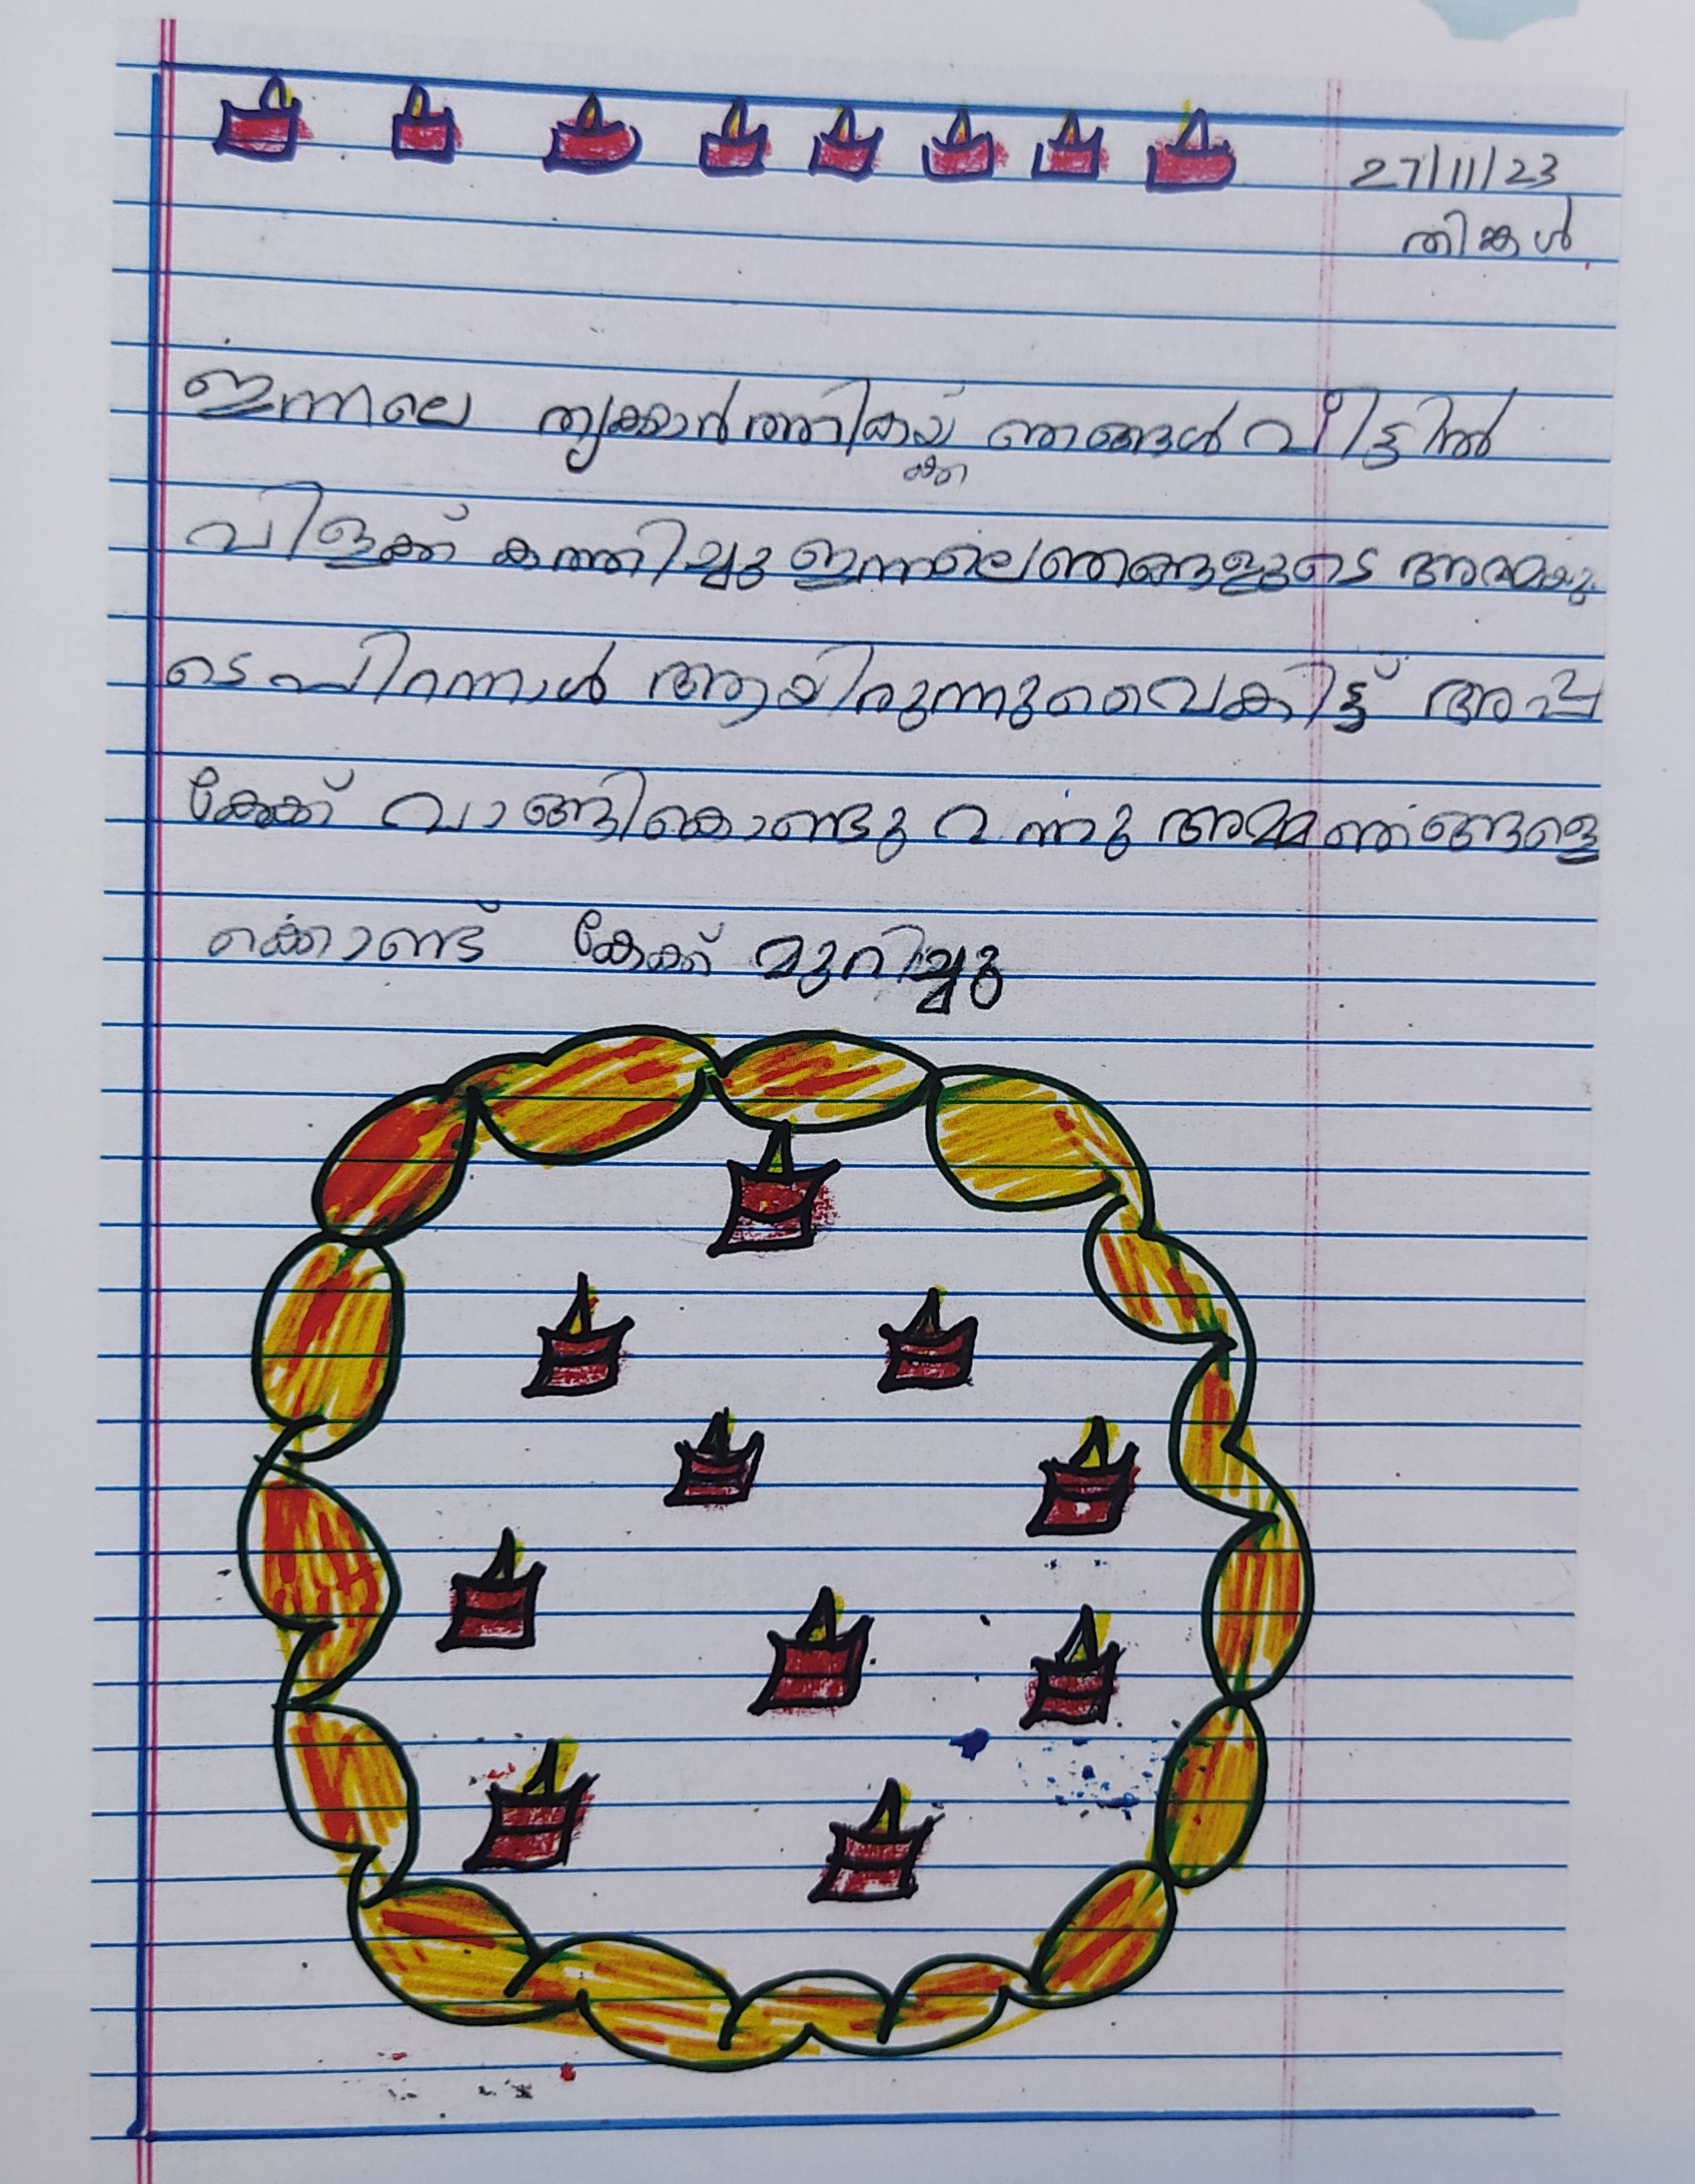 27/11/23
തിങ്കൾ
ഇന്നലെ തൃക്കാർത്തികയ്ക്ക് ഞങ്ങൾ വീട്ടിൽ
വിളക്ക് കത്തിച്ചു ഇന്നലെ ഞങ്ങളുടെ അമ്മയു
ടെ പിറന്നാൾ ആയിരുന്നു വൈകിട്ട് അച്ഛ
കേക്ക് വാങ്ങികൊണ്ടു വന്നു അമ്മ ഞങ്ങളെ
ക്കൊണ്ട് കേക്ക് മുറിച്ചു